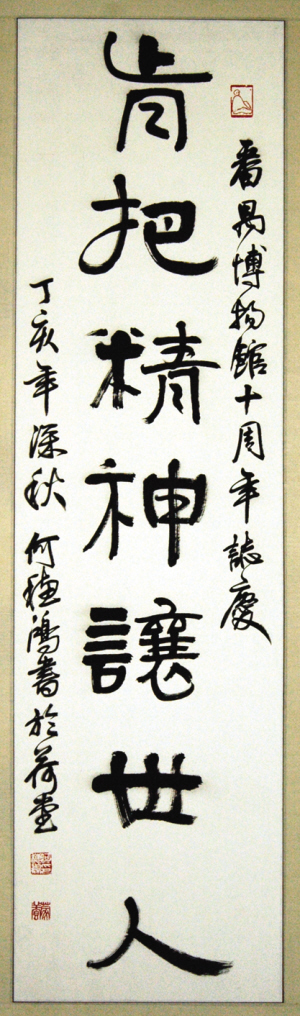 番禺博物館十周年誌慶
肯把精神讓世人
丁亥年深秋何穗鴻書於荷堂